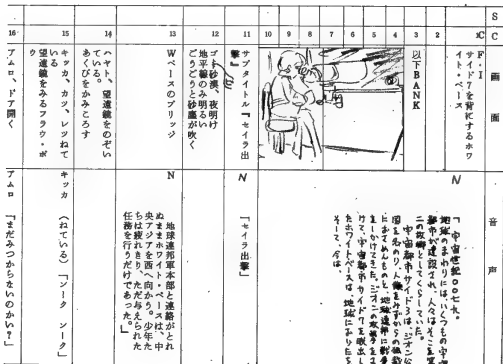 S
C
画面
音声
1C
F・I
サイド7を背にするホワ
イト・ベース
2
3
以下BANK
4
5
6
7
8
9
10
N
「宇宙世紀〇〇七九。
地球のまわりには、いくつもの宇宙
都市が建設され、人々はそこを
二の故郷としてくらしていた。
宇宙都市サイド3は、ジオン公
国を名のり、人類をみずからの独裁
におさめんものと、地球連邦に戦争
をしかけてきた。ジオンの攻撃をさ
けて、宇宙都市サイド7を脱出し
たホワイトベースは、地球におりたち
そして、今は
11
サブタイトル『セイラ出
撃』
N
「セイラ出撃」
12
砂漠、夜明け
地平線のみ明るい
ごうごうと砂塵が吹く
13
Wベースのブリッジ
N
地球連邦軍本部と連絡がとれ
ぬままホワイト・ベースは、中
央アジアを西へ向かう。少年た
ちは疲れきり、ただ与えられた
任務を行うだけであった。」
14
ハヤト、望遠鏡をのぞい
ている。
あくびをかみころす
15
キッカ、カツ、レツねて
いる
望遠鏡をみるフラウ・ボ
ウ
キッカ
(ねている)「ンーク ンーク」
16
アムロ、ドア開く
アムロ
「まだみつからないのかい?」